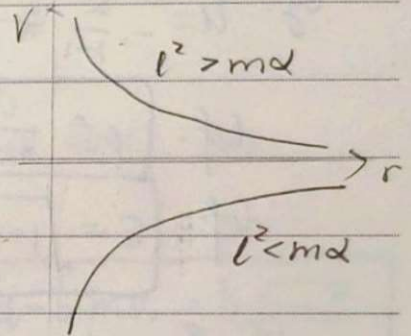 V
l² > mα
r
l² < mα